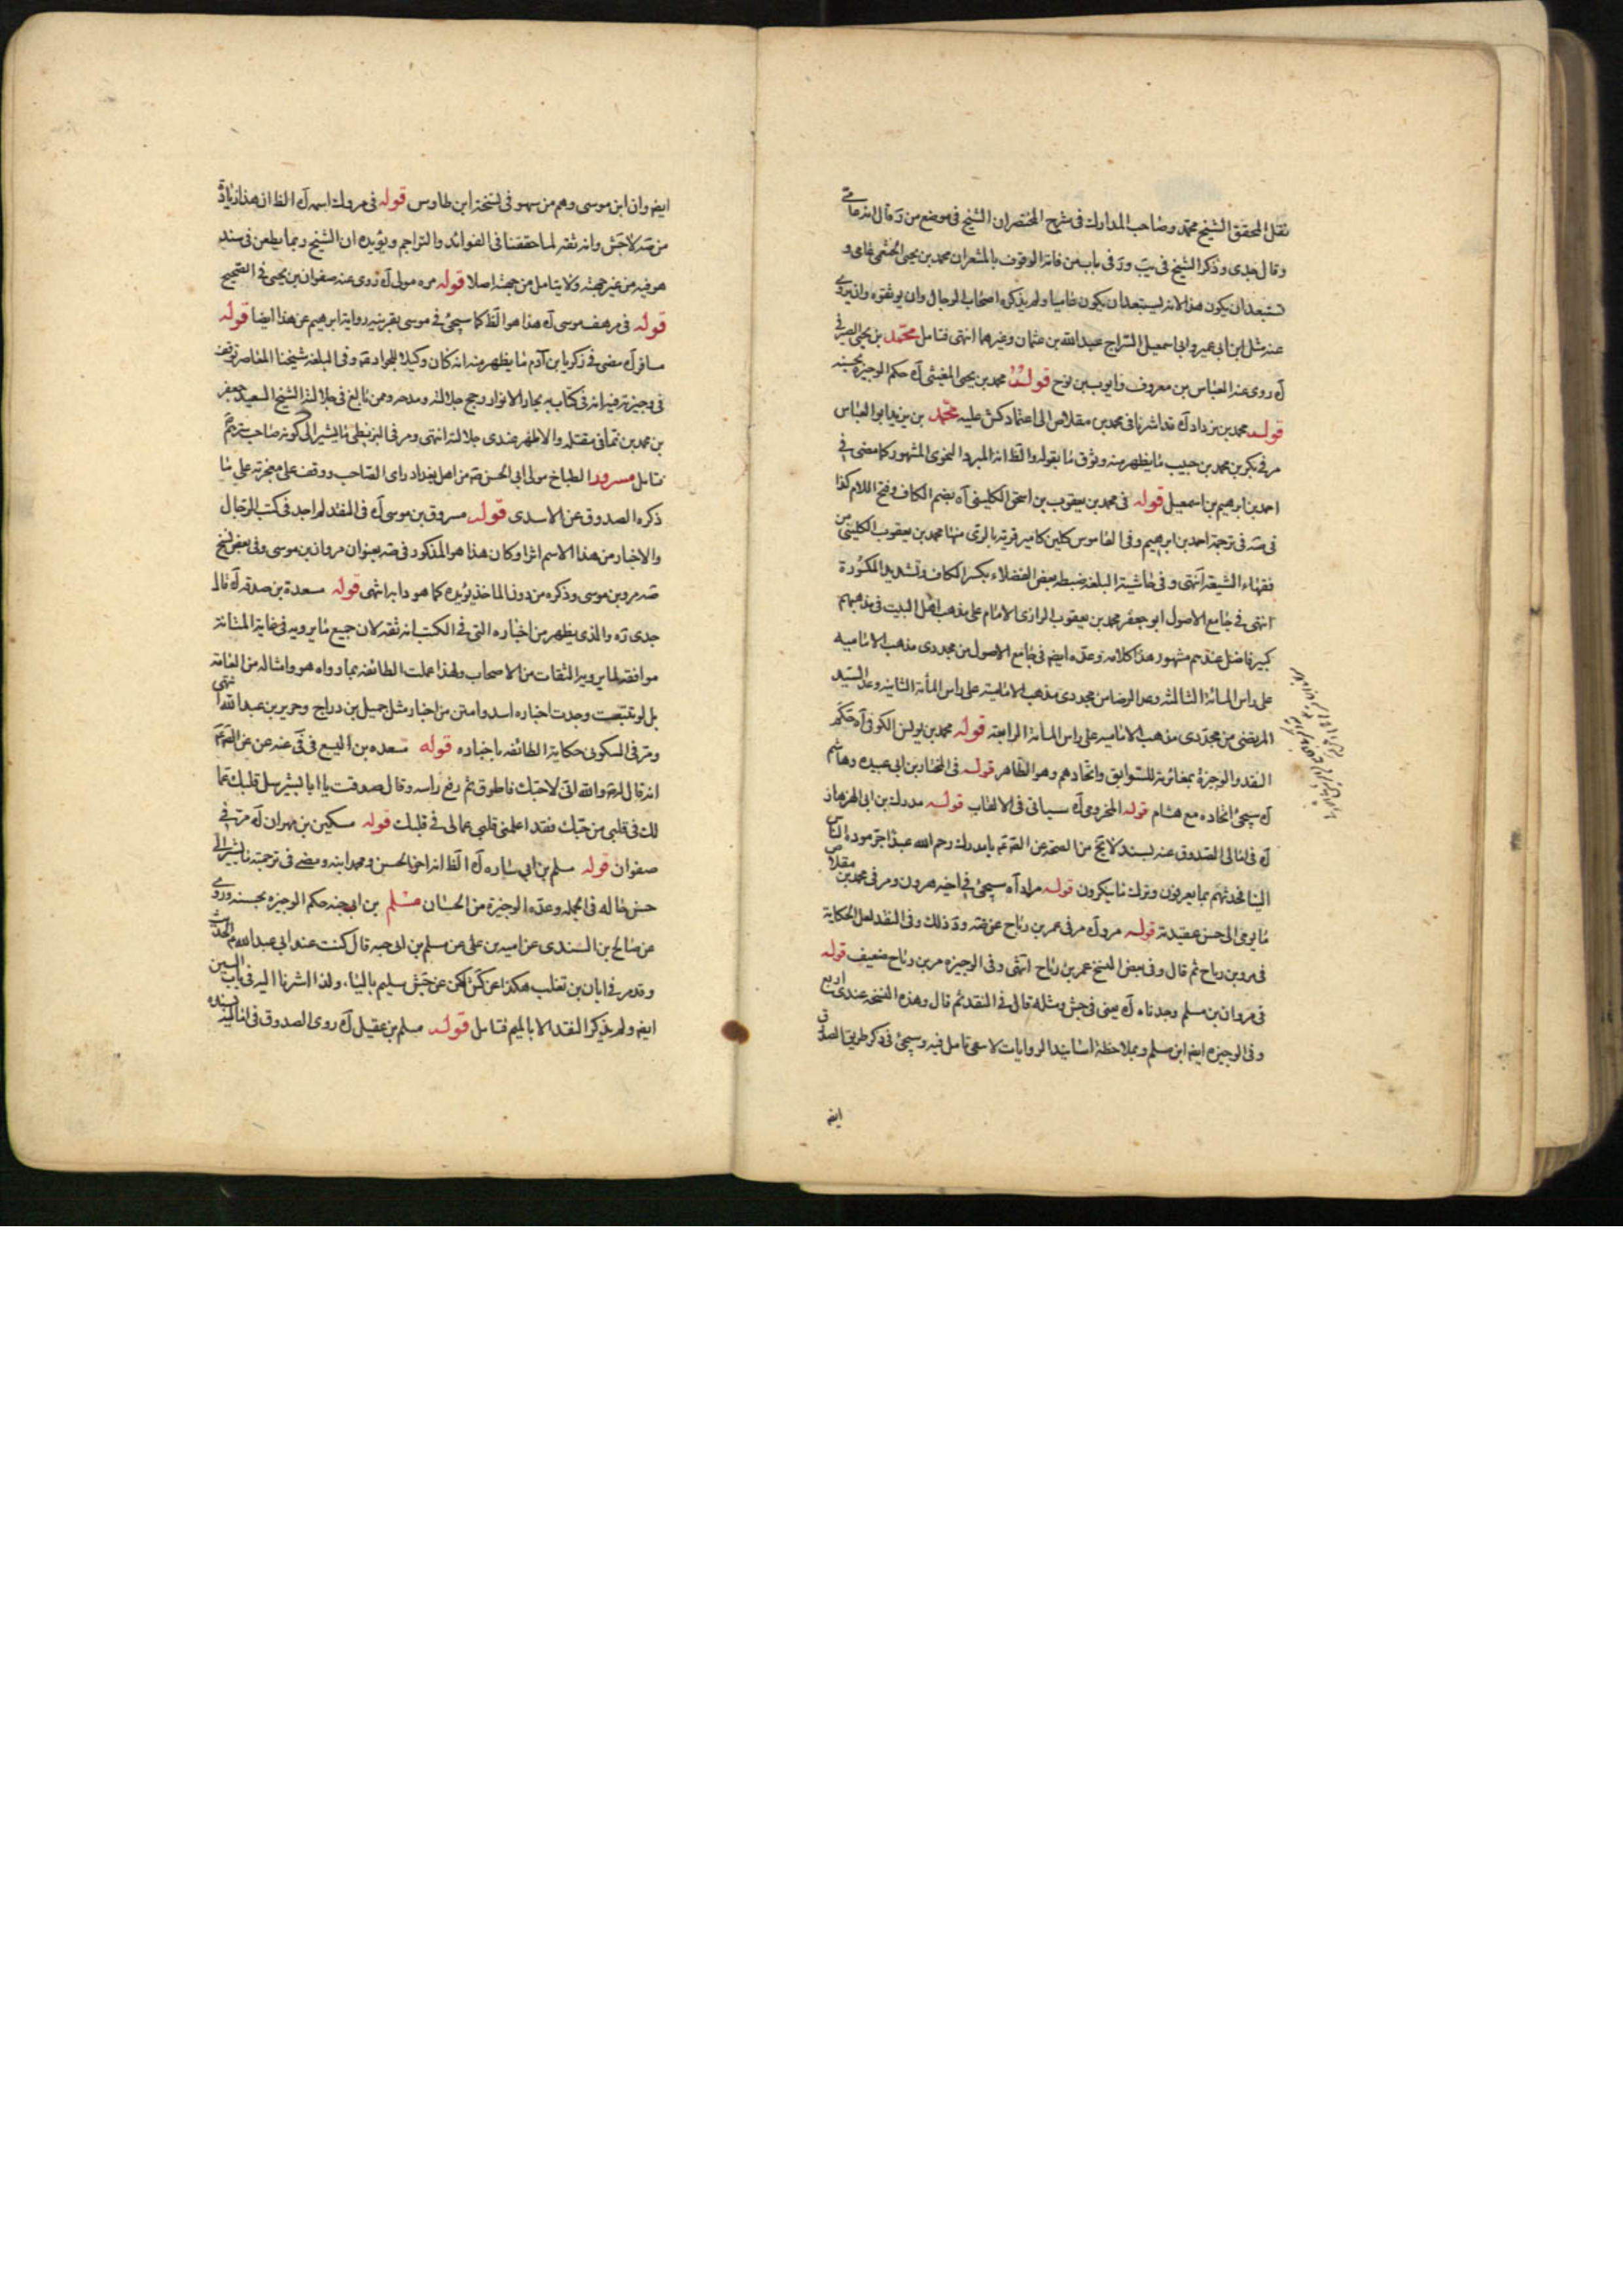 نقل المحقق الشيخ محمد وصاحب المدارك في شرح المختصر ان الشيخ في موضع من ر قال انه عامي
وقال جدي وذكر الشيخ في يب ور في باب من فاته الوقوف بالمشعر ان محمد بن يحيى الخثعمي عامي و
يستبعد ان يكون هو الانه ليستبعد ان يكون عاميا ولم يذكره اصحاب الرجال وان يوثقوه وان يروي
عنه مثل ابن ابي عمير وابي اسمعيل السراج عبد الله بن عثمان وغيرهما انتهى فتامل محمد بن يحيى الصيرفي
ك روى عنه العباس بن معروف وايوب بن نوح قوله محمد بن يحيى المغيثي ك حكم الوجيزة بحسنه
قوله محمد بن يزداد ك قد اشرنا في محمد بن مقلاص الى اعتماد كش عليه محمد بن يزيد ابو العباس
مر في بكر بن محمد بن حبيب ما يظهر منه وثوق ما بقوله والظ انه المبرد النحوي المشهور كما مضى في
احمد بن ابرهيم بن اسمعيل قوله في محمد بن يعقوب بن اسحق الكليني آه بضم الكاف وفتح اللام كذا
في صه في ترجمة احمد بن ابرهيم وفي القاموس كلين كامير قرية بالري منها محمد بن يعقوب الكليني من
فقهاء الشيعة انتهى وفي حاشية البلغة ضبطه بعض الفضلاء بكسر الكاف وتشديد اللام المكسورة
انتهى في جامع الاصول ابو جعفر محمد بن يعقوب الرازي الامام على مذهب اهل البيت في مذهبهم
كبير فاضل عندهم مشهور هذا كلامه وعده ايضا في جامع الاصول من مجددي مذهب الامامية
على راس المائة الثالثة وعد الرضا من مجددي مذهب الامامية على راس المأة الثانية وعد السيد
المرتضى من مجددي مذهب الامامية على راس المأة الرابعة قوله محمد بن يونس الكوفي آه حكم
النقد والوجيزة بمغائرته للسوابق واتحادهم وهو الظاهر قوله في المختار بن ابي عبيده وهاشم
ك سيجئ اتحاده مع هشام قوله المخزومي ك سياتي في الالقاب قوله مدرك بن ابي الهزهاز
ك في امالي الصدوق عنه بسند لا يخ من الصحة عن الق ع يا مدرك رحم الله عبدا اجتر مودة الناس
الينا فحدثهم بما يعرفون وترك ما ينكرون قوله مراد آه سيجئ في اخيه هرون ومر في محمد بن مقلاص
ما يومي الى حسن عقيدته قوله مرو ك مر في عمر بن رياح عن صه ود ذلك وفي النقد لعل الحكاية
في مرو بن رياح ثم قال وفي بعض النسخ عمر بن رياح انتهى وفي الوجيزه مر بن رياح ضعيف قوله
في مروان بن مسلم وجدناه ك يعنى في جش ومثله قال في النقد ثم قال وهذه النسخة عندي اربع
وفي الوجيزه ايضا ابن مسلم وبملاحظة اسانيد الروايات لا يبقى تامل فيه وسيجئ في ذكر طريق الصدوق
ايضا
ايضا وان ابن موسى وهم من سهو في نسخة ابن طاوس قوله في مروك اسمه ك الظ ان هذا زيادة
من صه لا جش وانه ثقة لما حققنا في الفوائد والتراجم ويؤيده ان الشيخ ربما يطعن في سند
هو فيه من غير جهته ولا يتامل من جهته اصلا قوله مره مولى ك روى عنه صفوان بن يحيى في الصحيح
قوله في مرهف موسى ك هذا هو الظ كما سيجئ في موسى بقرينه رواية ابرهيم عن هذا ايضا قوله
مسافر ك مضى في زكريا بن آدم ما يظهر منه انه كان وكيلا للجواد عه وفي البلغة شيخنا المعاصر توقف
في وجيزته فيه انه في كتابه بحار الانوار رجح جلالته ومدحه وممن بالغ في جلالته الشيخ السعيد جعفر
بن محمد بن نما في مقتله والاظهر عندي جلالته انتهى ومر في البزنطي ما يشير الى كونه صاحب سرهم
تتامل مسرور الطباخ مولى ابي الحسن صه من اهل بغداد راى الصاحب ووقف على معجزته على ما
ذكره الصدوق عن الاسدي قوله مسروق بن موسى ك في النقد لم اجد في كتب الرجال
والاخبار من هذا الاسم اثرا وكان هذا هو المذكور في صه بعنوان مروان بن موسى وفي بعض نسخ
صه مرو بن موسى وذكره من دون الماخذ يؤيده كما هو دابه انتهى قوله مسعدة بن صدقه ك قال
جدي ره والذي يظهر من اخباره التي في الكتب انه ثقة لان جميع ما يرويه في غاية المتانة
موافقه لما يرويه الثقات من الاصحاب ولهذا عملت الطائفة بما رواه هو وامثاله من العامة
بل لو تتبعت وجدت اخباره اسد وامتن من اخبار مثل جميل بن دراج وحريز بن عبد الله انتهى
ومر في السكوني حكاية الطائفه باخباره قوله مسعده بن اليسع في في عنه عن الق ع
انه قال له والله اني لاحبك فاطرق ثم رفع راسه وقال صدقت يا ابا بشر سل قلبك عما
لك في قلبي من حبك فقد اعلمني قلبي عما لي في قلبك قوله مسكين بن مهران ك مر في
صفوان قوله مسلم بن ابي ساره ك الظ انه اخو الحسن ومحمد ابنه ومضى في ترجمته ما يشير الى
حسن حاله في الجمله وعده الوجيزة من الحسان مسلم بن ابي حبه حكم الوجيزه بحسنه وروى
عن صالح بن السندي عن اميه بن علي عن مسلم بن ابي حبه قال كنت عند ابي عبد الله ع الحديث
وقد مر في ابان بن تغلب هكذا عن كش لكن عن جش سليم بالياء، ولذا اشرنا اليه في باب السين
ايضا ولم يذكر النقد الا بالميم فتامل قوله مسلم بن عقيل ك روى الصدوق في اماليه بسنده